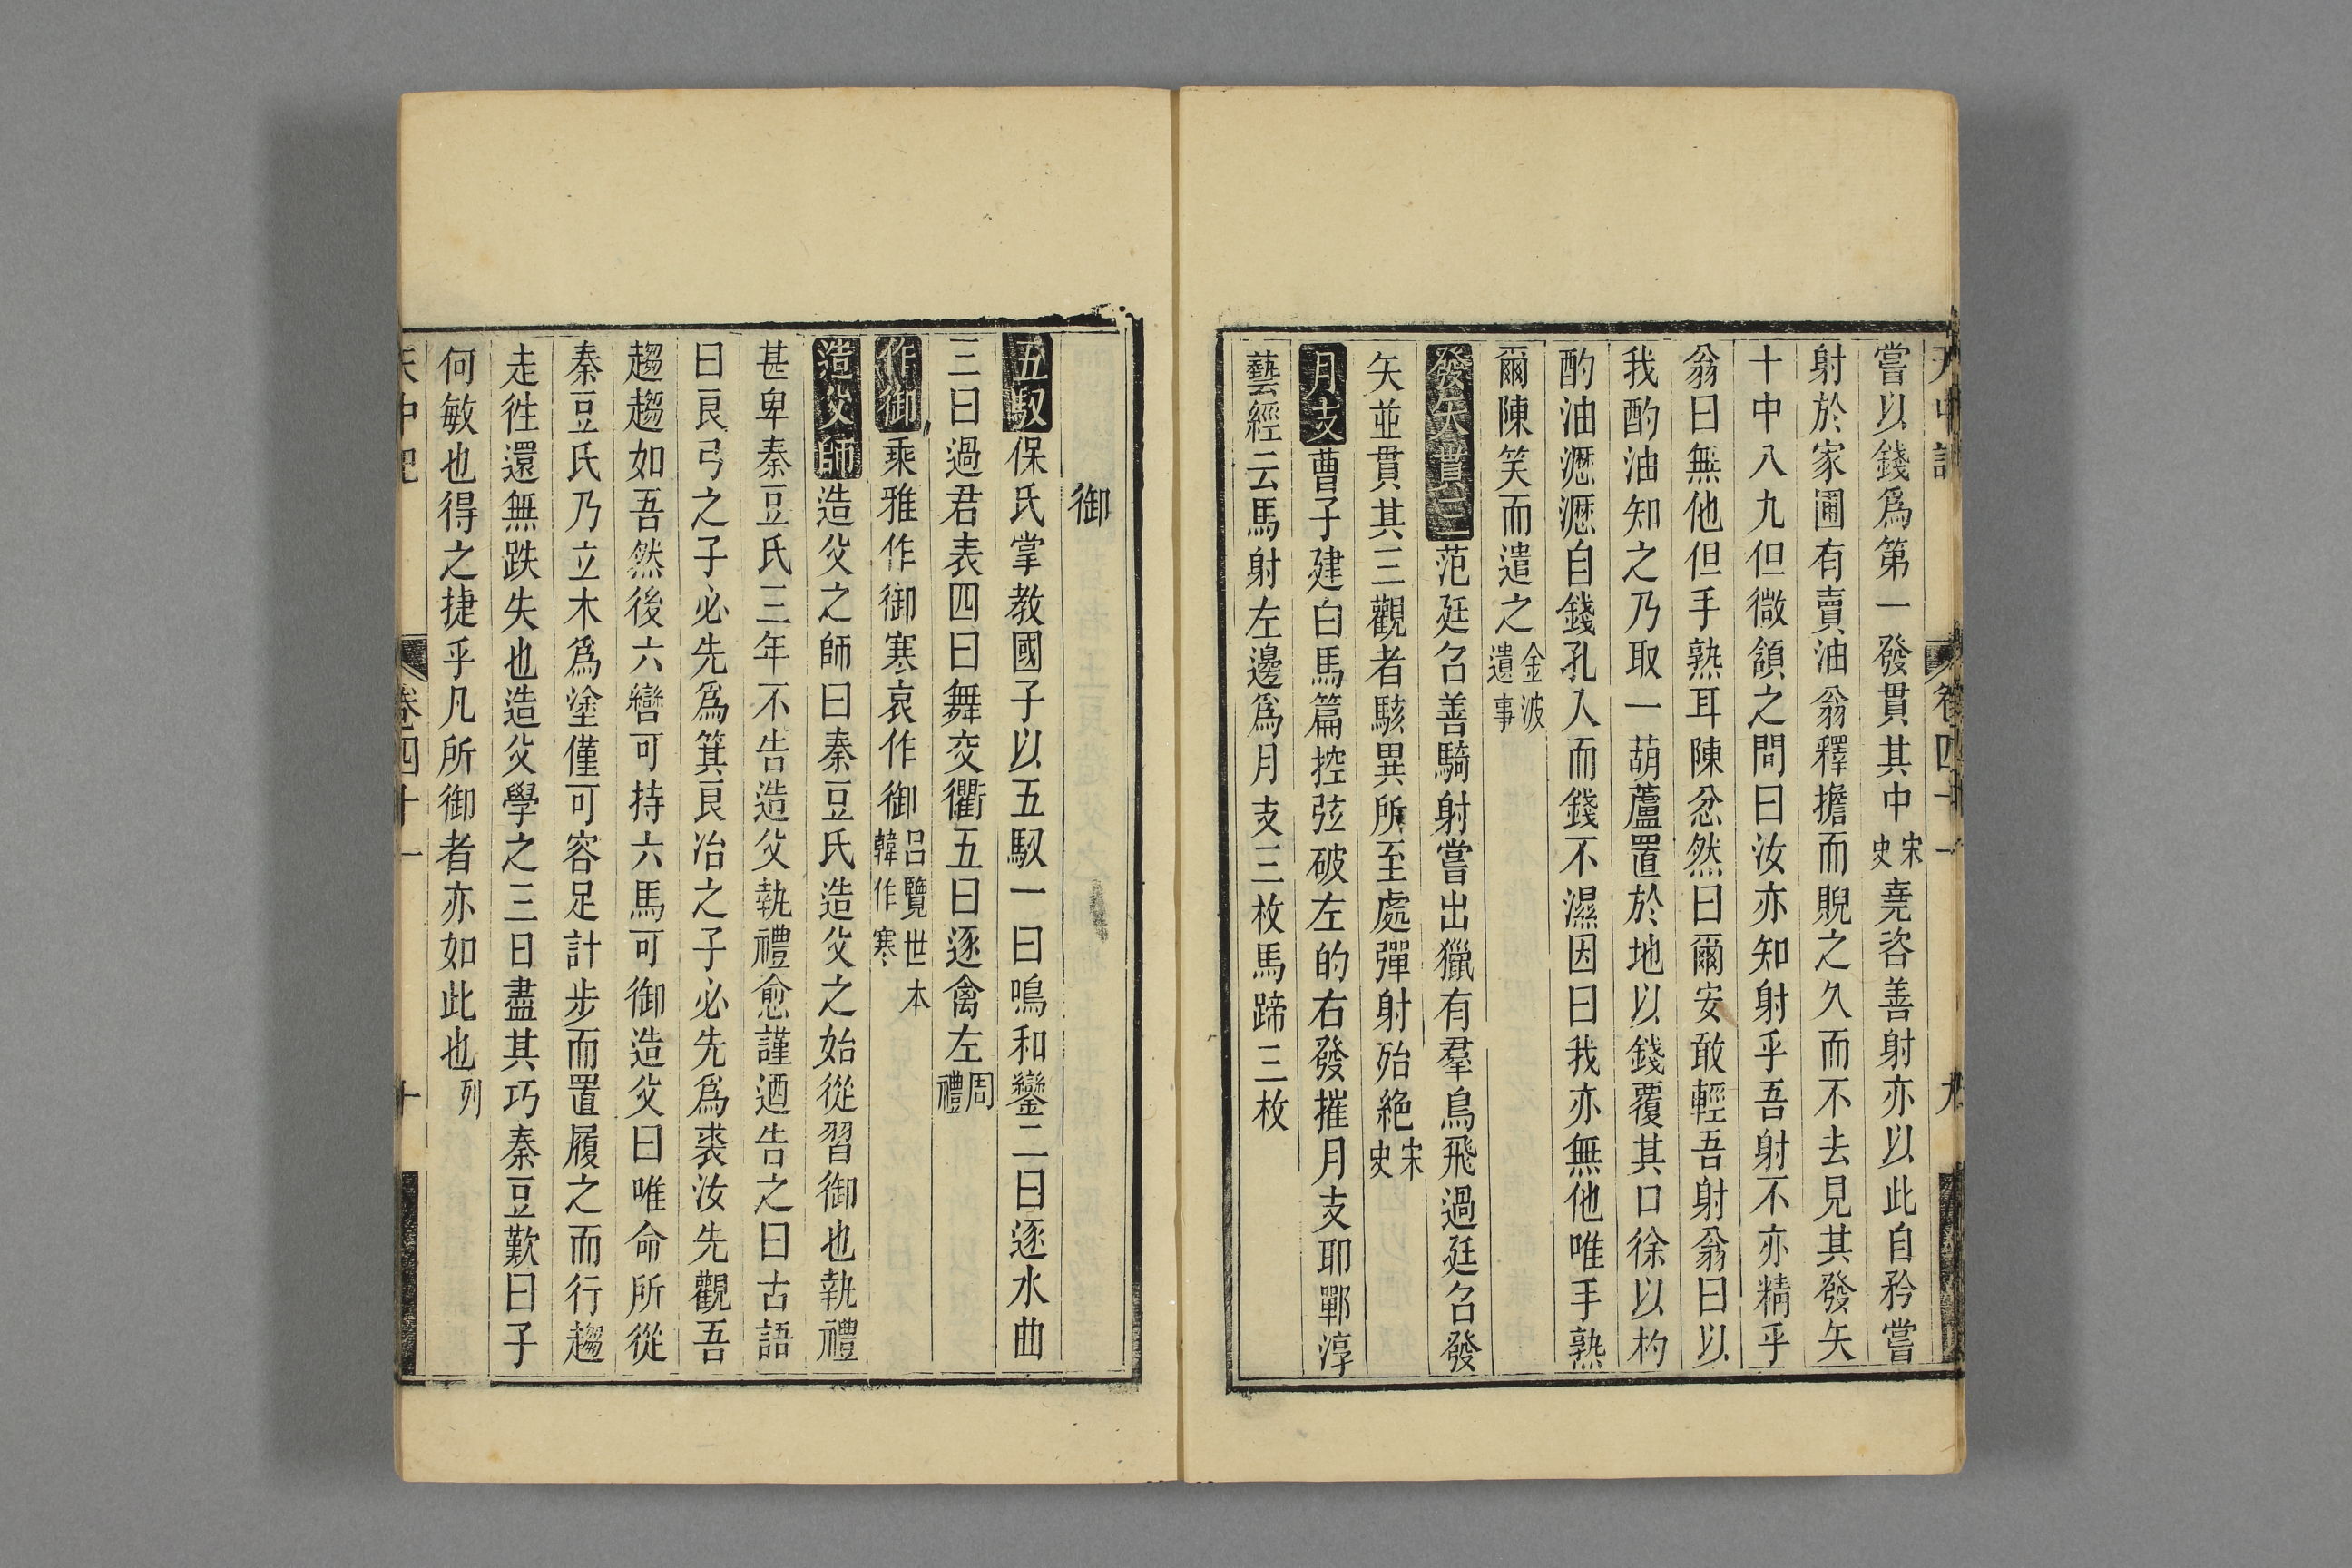 嘗以錢爲第一發貫其中宋史堯咨善射亦以此自矜嘗
射於家圃有賣油翁釋擔而睨之久而不去見其發矢
十中八九但微頷之問曰汝亦知射乎吾射不亦精乎
翁曰無他但手熟耳陳忿然曰爾安敢輕吾射翁曰以
我酌油知之乃取一葫蘆置於地以錢覆其口徐以杓
酌油瀝瀝自錢孔入而錢不濕因曰我亦無他唯手熟
爾陳笑而遣之金波遺事
發矢貫三范廷召善騎射嘗出獵有羣鳥飛過廷召發
矢並貫其三觀者駭異所至處彈射殆絶宋史
月支曹子建白馬篇控弦破左的右發摧月支耶鄲淳
藝經云馬射左邊爲月支三枚馬蹄三枚
御
五馭保氏掌教國子以五馭一曰鳴和鑾二曰逐水曲
三曰過君表四曰舞交衢五曰逐禽左周禮
作御乘雅作御寒哀作御呂覽世本韓作寒
造父師造父之師曰秦豆氏造父之始從習御也執禮
甚卑秦豆氏三年不告造父執禮愈謹迺告之曰古語
曰良弓之子必先爲箕良冶之子必先爲裘汝先觀吾
趨趨如吾然後六轡可持六馬可御造父曰唯命所從
秦豆氏乃立木爲塗僅可容足計步而置履之而行趨
走徃還無跌失也造父學之三日盡其巧秦豆歎曰子
何敏也得之捷乎凡所御者亦如此也列
天中記 卷四十一 十